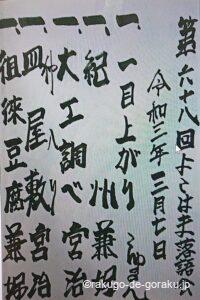 第六十八回 よこはま落語会
令和三年三月七日
一、一目上がり
一、紀州 兼好
一、大工調べ 宮治
仲入り
一、皿屋敷 宮治
一、徂徠豆腐 兼好
©rakugo-de-goraku.jp